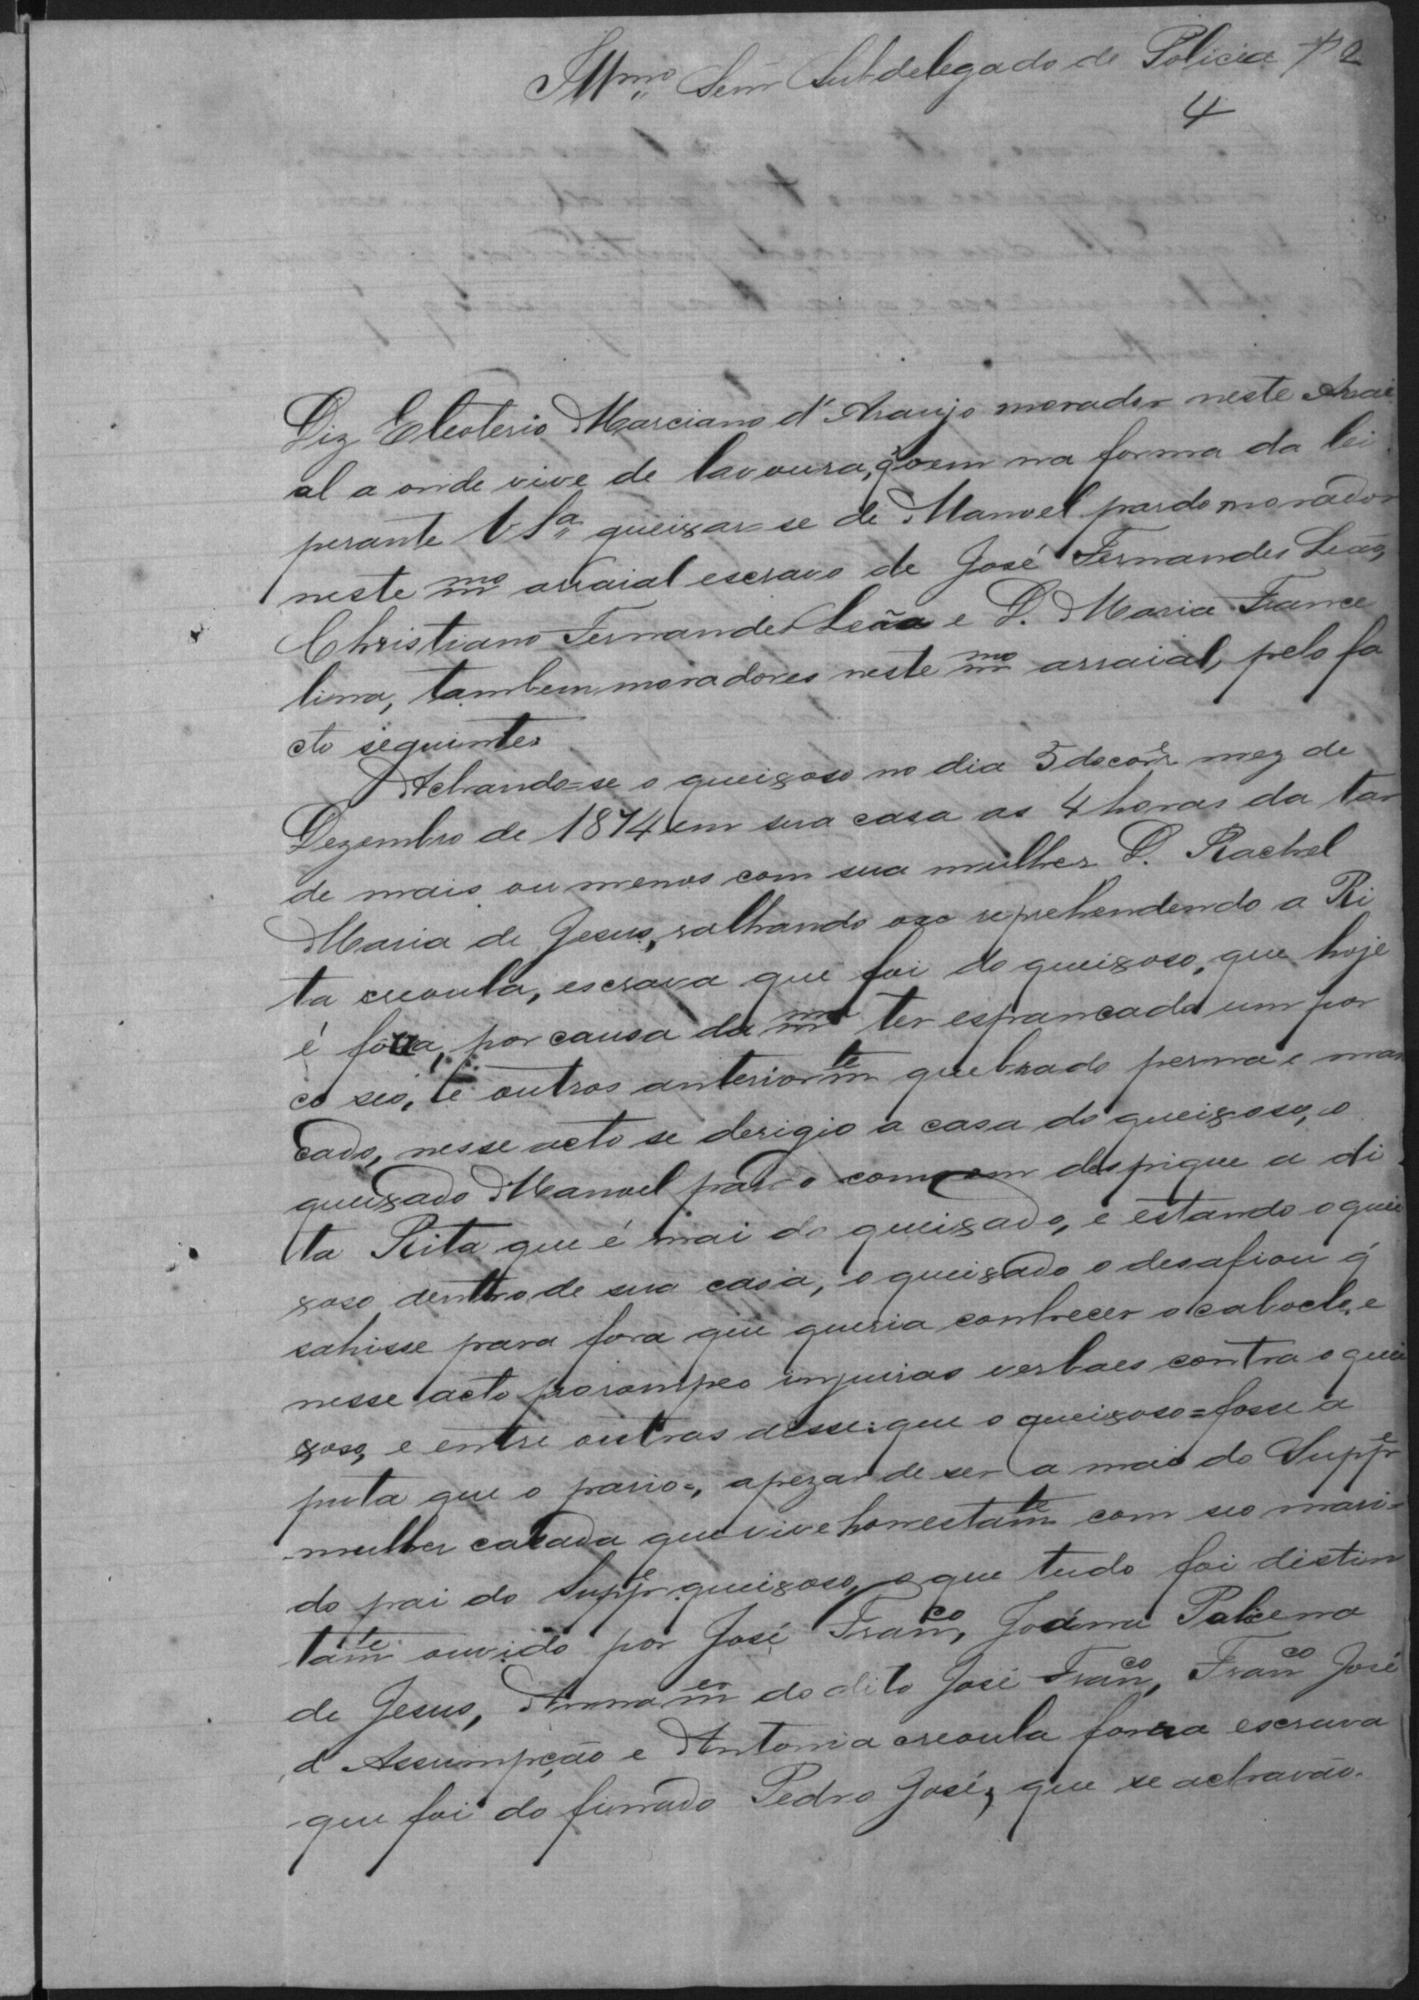 Illmo Senr Subdelegado de Policia f 2
4
Diz Eleoterio Marciano d'Araujo morador neste Arai
al a onde vive de lavoura, q̃ vem na forma da lei
perante V. Sa queixar-se de Manoel pardo morador
neste mmo arraial escravo de José Fernandes Leão,
Christiano Fernandes Leão e D. Maria France
lina, tambem moradores neste mmo arraial, pelo fa
cto seguinte
Achando-se o queixoso no dia 5 do corre mez de
Dezembro de 1874 em sua casa as 4 horas da tar
de mais ou menos com sua mulher D. Rachel
Maria de Jesus, ralhando ou reprehendendo a Ri
ta creoula, escrava que foi do queixoso, que hoje
é forra, por causa da mma ter espancado um por
co seo, e outros anteriormte quebrado perna e man
cado, nesse acto se derigio a casa do queixoso, o
queixado Manoel pardo com em despique a di
ta Rita que é mai do queixado, e estando o quei
xoso dentro de sua casa, o queixado o desafiou q̃
sahisse para fora que queria conhecer o caboclo, e
nesse acto prorompeo injurias verbaes contra o quei
xoso, e entre outras disse: que o queixoso = fosse a
puta que o pario =, apezar de ser a mai do Suppe
mulher casada que vive honestamte com seo mari-
do pai do Suppe queixoso, o que tudo foi distin
tamte ouvido por José Franco, Joanna
de Jesus, Anna mer do dito José Franco, Franco José
d'Assumpção e Antonia creoula forra escrava
que foi do finado Pedro José, que se achavão.